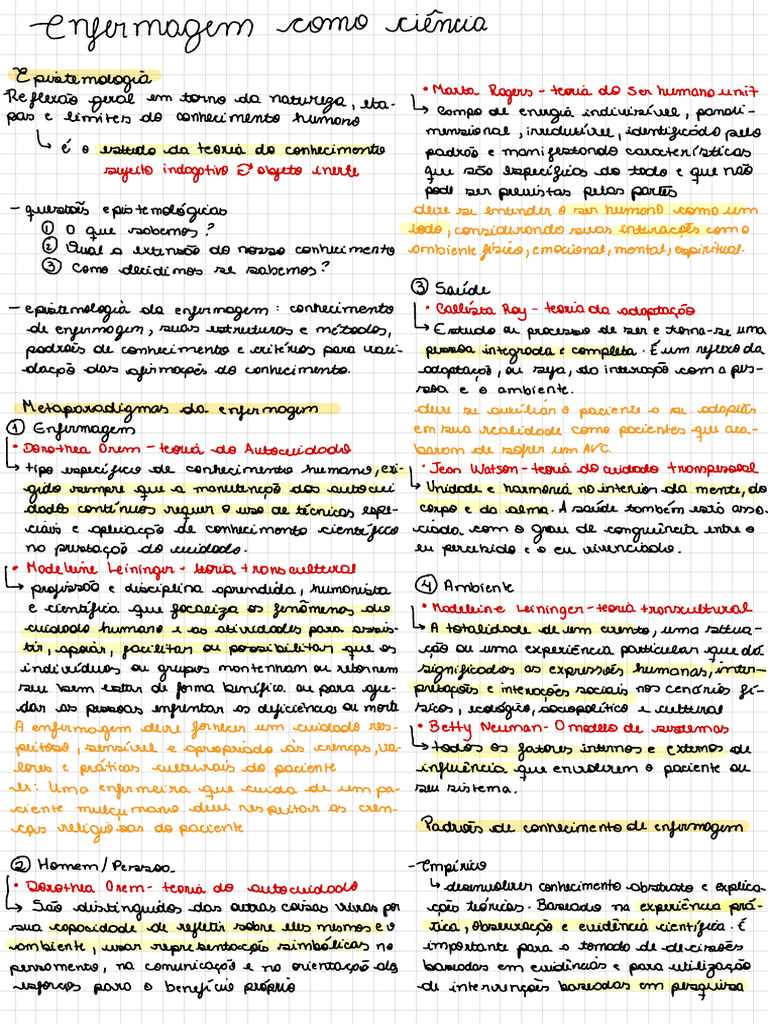 Enfermagem como ciência
Epistemologia
Reflexão geral em torno da natureza, eta-
pas e limites do conhecimento humano
é o estudo da teoria do conhecimento
sujeito indagativo objeto inerte
- questões epistemológicas
① O que sabemos?
② Qual a extensão do nosso conhecimento
③ Como decidimos se sabemos?
- epistemologia da enfermagem: conhecimento
de enfermagem, suas estruturas e métodos,
padrões de conhecimento e critérios para vali-
dação das afirmações do conhecimento.
Metaparadigmas da enfermagem
① Enfermagem
• Dorothea Orem - teoria do Autocuidado
tipo específico de conhecimento humano, exi-
gido sempre que a manutenção dos autocui
dados contínuos requer o uso de técnicas espe-
ciais e aplicação de conhecimento científico
na prestação do cuidado.
• Madeleine Leininger - teoria transcultural
profissão e disciplina aprendida, humanista
e científica que focaliza os fenômenos do
cuidado humano e as atividades para assis-
tir, apoiar, facilitar ou possibilitar que os
indivíduos ou grupos mantenham ou retornem
seu bem estar de forma benéfica. ou para aju-
dar as pessoas enfrentar as deficiência ou morte
A enfermagem deve fornecer um cuidado res-
peitoso, sensível e apropriado às crenças, va-
lores e práticas culturais do paciente
ex: Uma enfermeira que cuida de um pa-
ciente mulçumano deve respeitar as cren-
ças religiosas do paciente
② Homem/Pessoa
• Dorothea Orem - teoria do autocuidado
São distinguidos das outras coisas vivas por
sua capacidade de refletir sobre eles mesmos e o
ambiente, usar representações simbólicas no
pensamento, na comunicação e na orientação dos
esforços para o benefício próprio
• Marta Rogers - teoria do ser humano unit
campo de energia indivisível, pandi-
mensional, irredutível, identificado pelo
padrão e manifestando características
que são específicas do todo e que não
pode ser previstas pelas partes
deve se entender o ser humano como um
todo, considerando suas interações com o
ambiente físico, emocional, mental, espiritual.
③ Saúde
• Callista Roy - teoria da adaptação
Estudo ou processo de ser e torna-se uma
pessoa integrada e completa. É um reflexo da
adaptação, ou seja, da interação com a pes-
soa e o ambiente.
deve se auxiliar o paciente a se adaptar
em sua realidade como pacientes que aca-
baram de sofrer um AVC.
• Jean Watson - teoria do cuidado transpessoal
Unidade e harmonia no interior da mente, do
corpo e da alma. A saúde também está asso-
ciada com o grau de congruência entre o
eu percebido e o eu vivenciado.
④ Ambiente
• Madeleine Leininger - teoria transcultural
A totalidade de um evento, uma situa-
ção ou uma experiência particular que dá
significados as expressões humanas, inter-
pretações e interações sociais nos cenários fí-
sicos, ecológico, sociopolítico e cultural
• Betty Neuman - O modelo de sistemas
todos os fatores internos e externos de
influência que envolvem o paciente ou
seu sistema.
Padrões de conhecimento de enfermagem
- Empírico
desenvolver conhecimento abstrato e explica-
ções teóricas. Baseado na experiência prá-
tica, observação e evidência científica. É
importante para a tomada de decisões
baseadas em evidências e para utilização
de intervenções baseadas em pesquisa